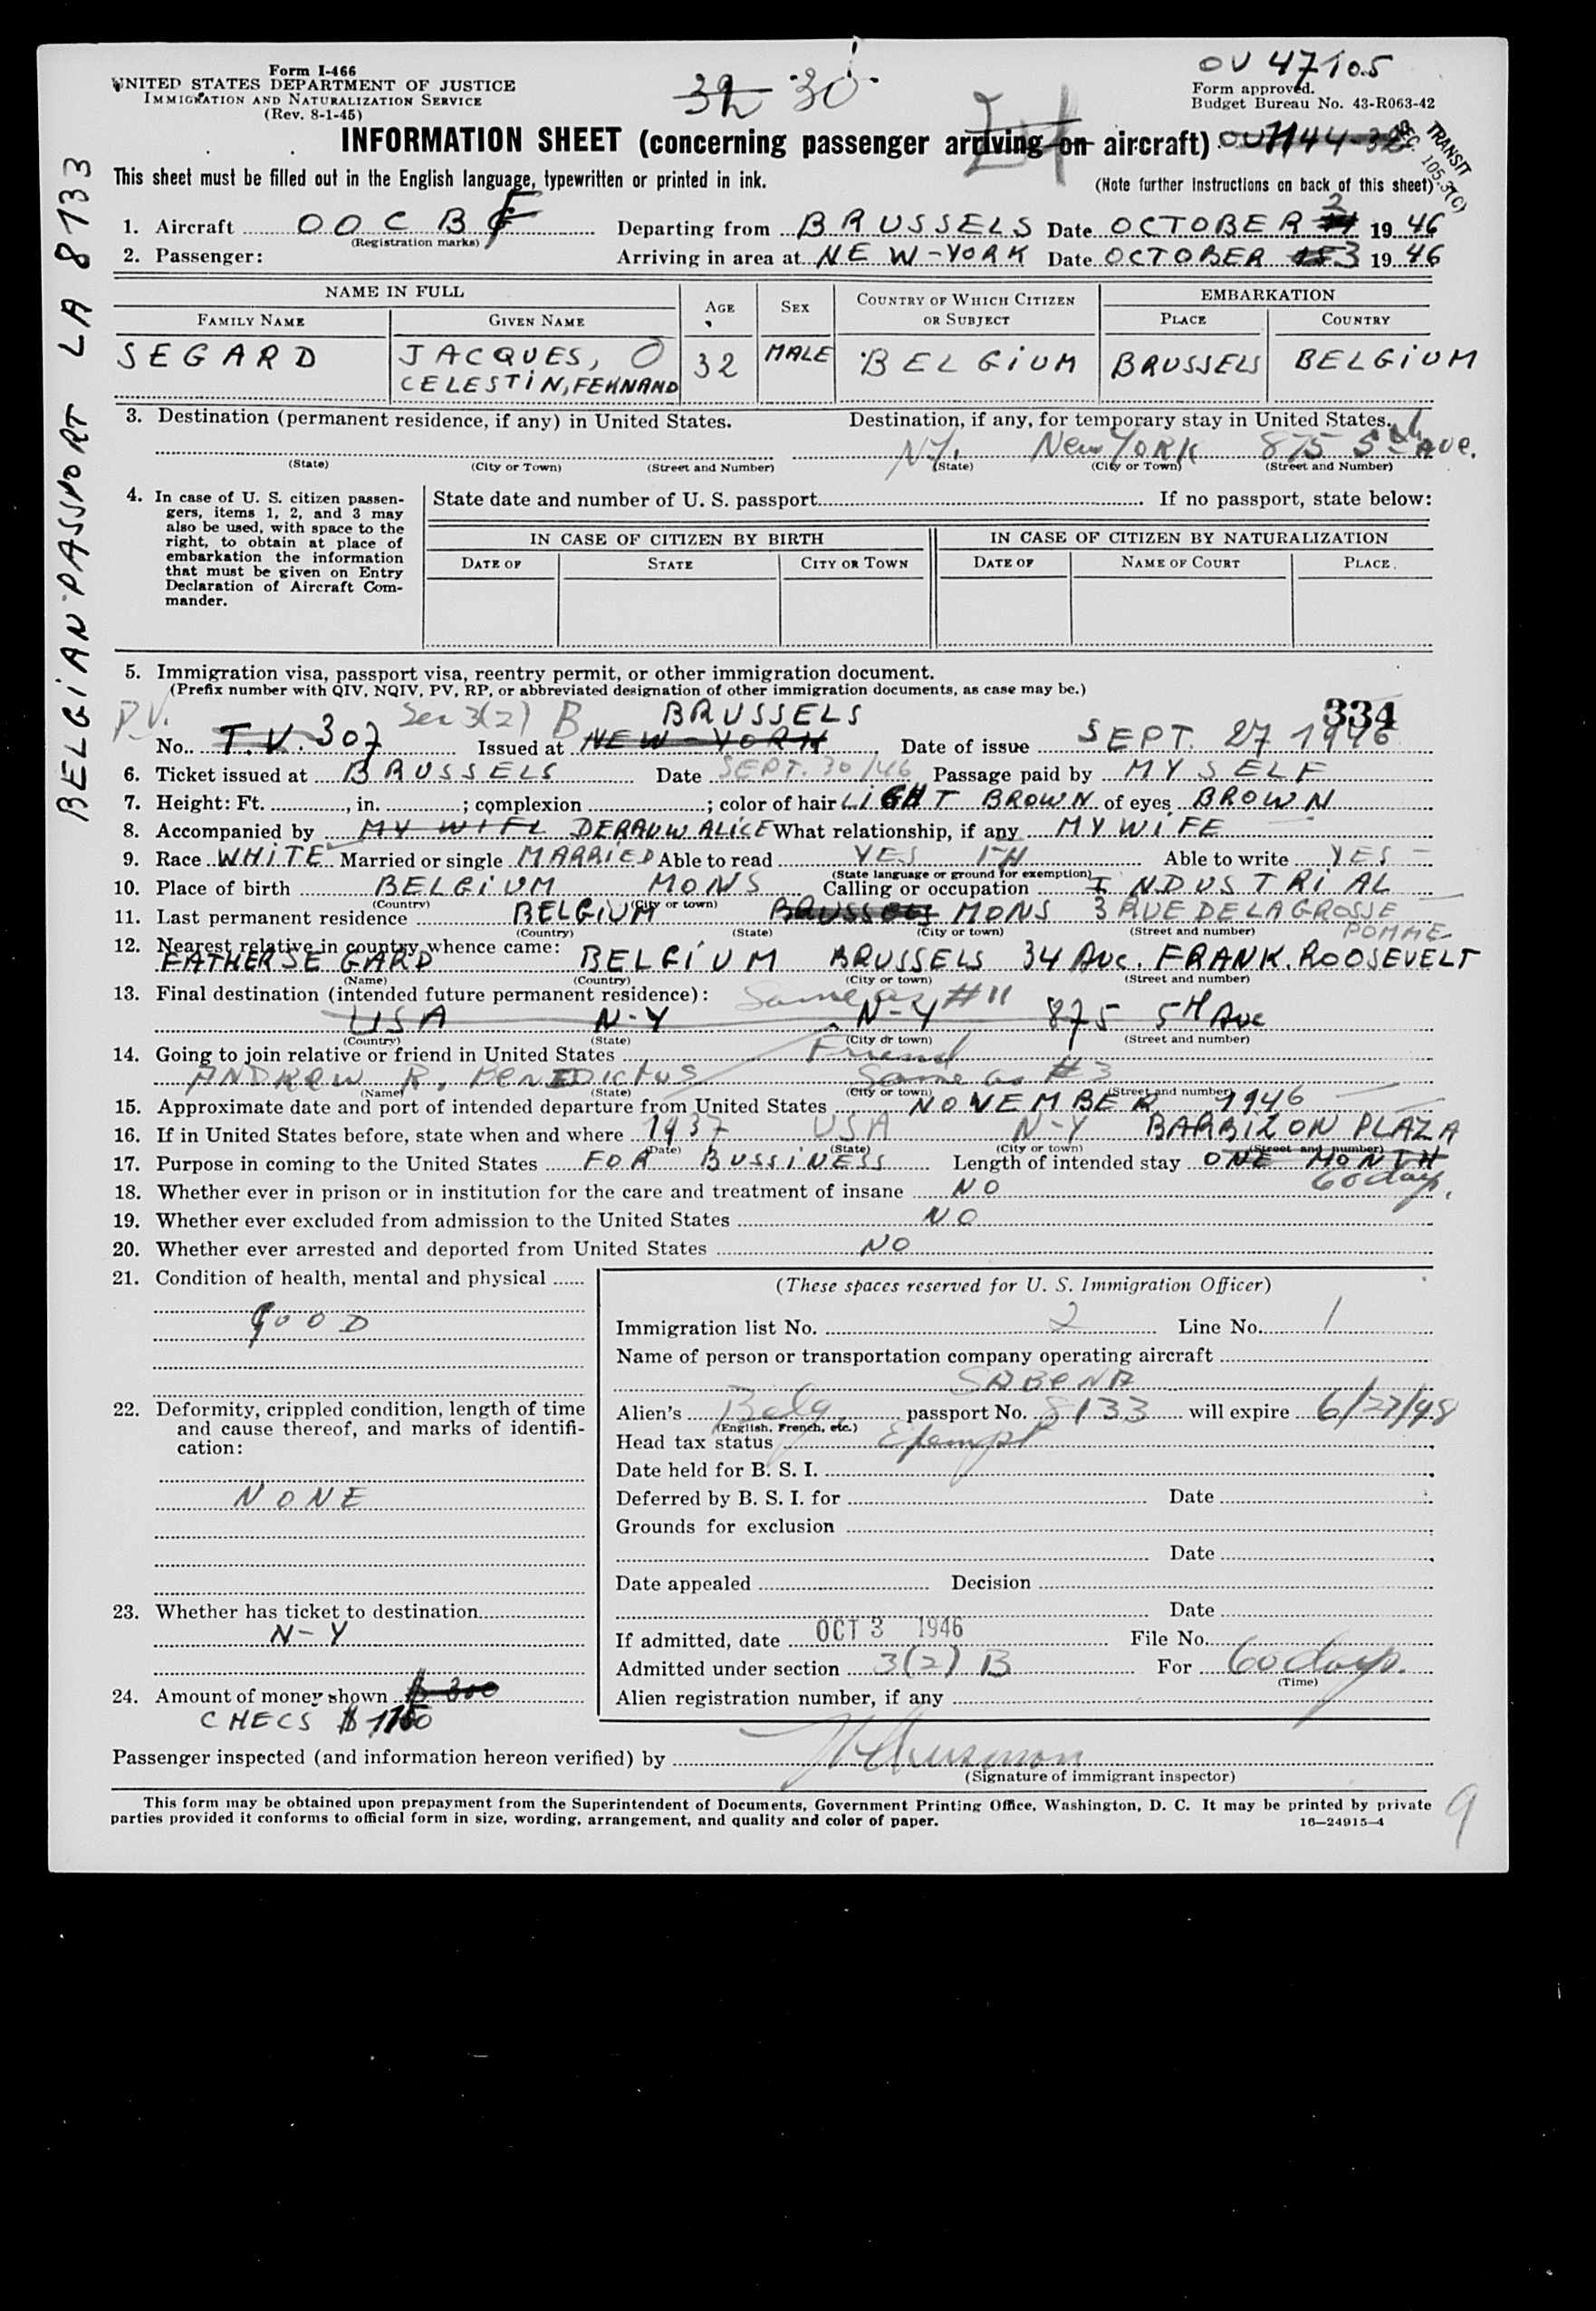 Form I-466
UNITED STATES DEPARTMENT OF JUSTICE
IMMIGRATION AND NATURALIZATION SERVICE
(Rev. 8-1-45)
32 30
OU 47105
Form approved.
Budget Bureau No. 43-R063-42
INFORMATION SHEET (concerning passenger arriving on aircraft)
TRANSIT
SEC. 105.3(C)
This sheet must be filled out in the English language, typewritten or printed in ink.
(Note further instructions on back of this sheet)
BELGIAN PASSPORT LA 8133
1. Aircraft OO C B F Departing from BRUSSELS Date OCTOBER 2 1946
(Registration marks)
2. Passenger: Arriving in area at NEW-YORK Date OCTOBER 3 1946
NAME IN FULL AGE SEX COUNTRY OF WHICH CITIZEN OR SUBJECT EMBARKATION
FAMILY NAME GIVEN NAME PLACE COUNTRY
SEGARD JACQUES, O 32 MALE BELGIUM BRUSSELS BELGIUM
CELESTIN, FERNAND
3. Destination (permanent residence, if any) in United States. Destination, if any, for temporary stay in United States.
NY. New YORK 875 5th Ave.
(State) (City or Town) (Street and Number) (State) (City or Town) (Street and Number)
4. In case of U. S. citizen passengers, items 1, 2, and 3 may also be used, with space to the right, to obtain at place of embarkation the information that must be given on Entry Declaration of Aircraft Commander.
State date and number of U. S. passport If no passport, state below:
IN CASE OF CITIZEN BY BIRTH IN CASE OF CITIZEN BY NATURALIZATION
DATE OF STATE CITY OR TOWN DATE OF NAME OF COURT PLACE
5. Immigration visa, passport visa, reentry permit, or other immigration document.
(Prefix number with QIV, NQIV, PV, RP, or abbreviated designation of other immigration documents, as case may be.)
334
P.V. Sec 3(2) B BRUSSELS
No. T.V. 307 Issued at NEW-YORK Date of issue SEPT. 27 1946
6. Ticket issued at BRUSSELS Date SEPT. 30/46 Passage paid by MYSELF
7. Height: Ft. , in. ; complexion ; color of hair LIGHT BROWN of eyes BROWN
8. Accompanied by MY WIFE DERAUW ALICE What relationship, if any MY WIFE
9. Race WHITE Married or single MARRIED Able to read YES Able to write YES
(State language or ground for exemption)
10. Place of birth BELGIUM MONS Calling or occupation INDUSTRIAL
(Country) (City or town)
11. Last permanent residence BELGIUM MONS 3 RUE DE LA GROSSE
POMME
(Country) (State) (City or town) (Street and number)
12. Nearest relative in country whence came:
FATHER SEGARD BELGIUM BRUSSELS 34 AVC. FRANK. ROOSEVELT
(Name) (Country) (City or town) (Street and number)
13. Final destination (intended future permanent residence): Same as #11
USA N-Y N-Y 875 5H Ave
(Country) (State) (City or town) (Street and number)
14. Going to join relative or friend in United States Friend
ANDREW R. BENEDICTUS Same as #3
(Name) (State) (City or town) (Street and number)
15. Approximate date and port of intended departure from United States NOVEMBER 1946
16. If in United States before, state when and where 1937 USA N-Y BARBIZON PLAZA
(Date) (State) (City or town) (Street and number)
17. Purpose in coming to the United States FOR BUSSINESS Length of intended stay ONE MONTH
60 days.
18. Whether ever in prison or in institution for the care and treatment of insane NO
19. Whether ever excluded from admission to the United States NO
20. Whether ever arrested and deported from United States NO
21. Condition of health, mental and physical
GOOD
22. Deformity, crippled condition, length of time and cause thereof, and marks of identification:
NONE
23. Whether has ticket to destination
N-Y
24. Amount of money shown $ 300
CHECS $ 1150
(These spaces reserved for U. S. Immigration Officer)
Immigration list No. 2 Line No. 1
Name of person or transportation company operating aircraft
SABENA
Alien's Belg. passport No. 8133 will expire 6/27/48
(English, French, etc.)
Head tax status Exempt
Date held for B. S. I.
Deferred by B. S. I. for Date
Grounds for exclusion
Date
Date appealed Decision
Date
If admitted, date OCT 3 1946 File No.
Admitted under section 3(2) B For 60 days.
(Time)
Alien registration number, if any
Passenger inspected (and information hereon verified) by
(Signature of immigrant inspector)
This form may be obtained upon prepayment from the Superintendent of Documents, Government Printing Office, Washington, D. C. It may be printed by private
parties provided it conforms to official form in size, wording, arrangement, and quality and color of paper.
16—24915-4
9